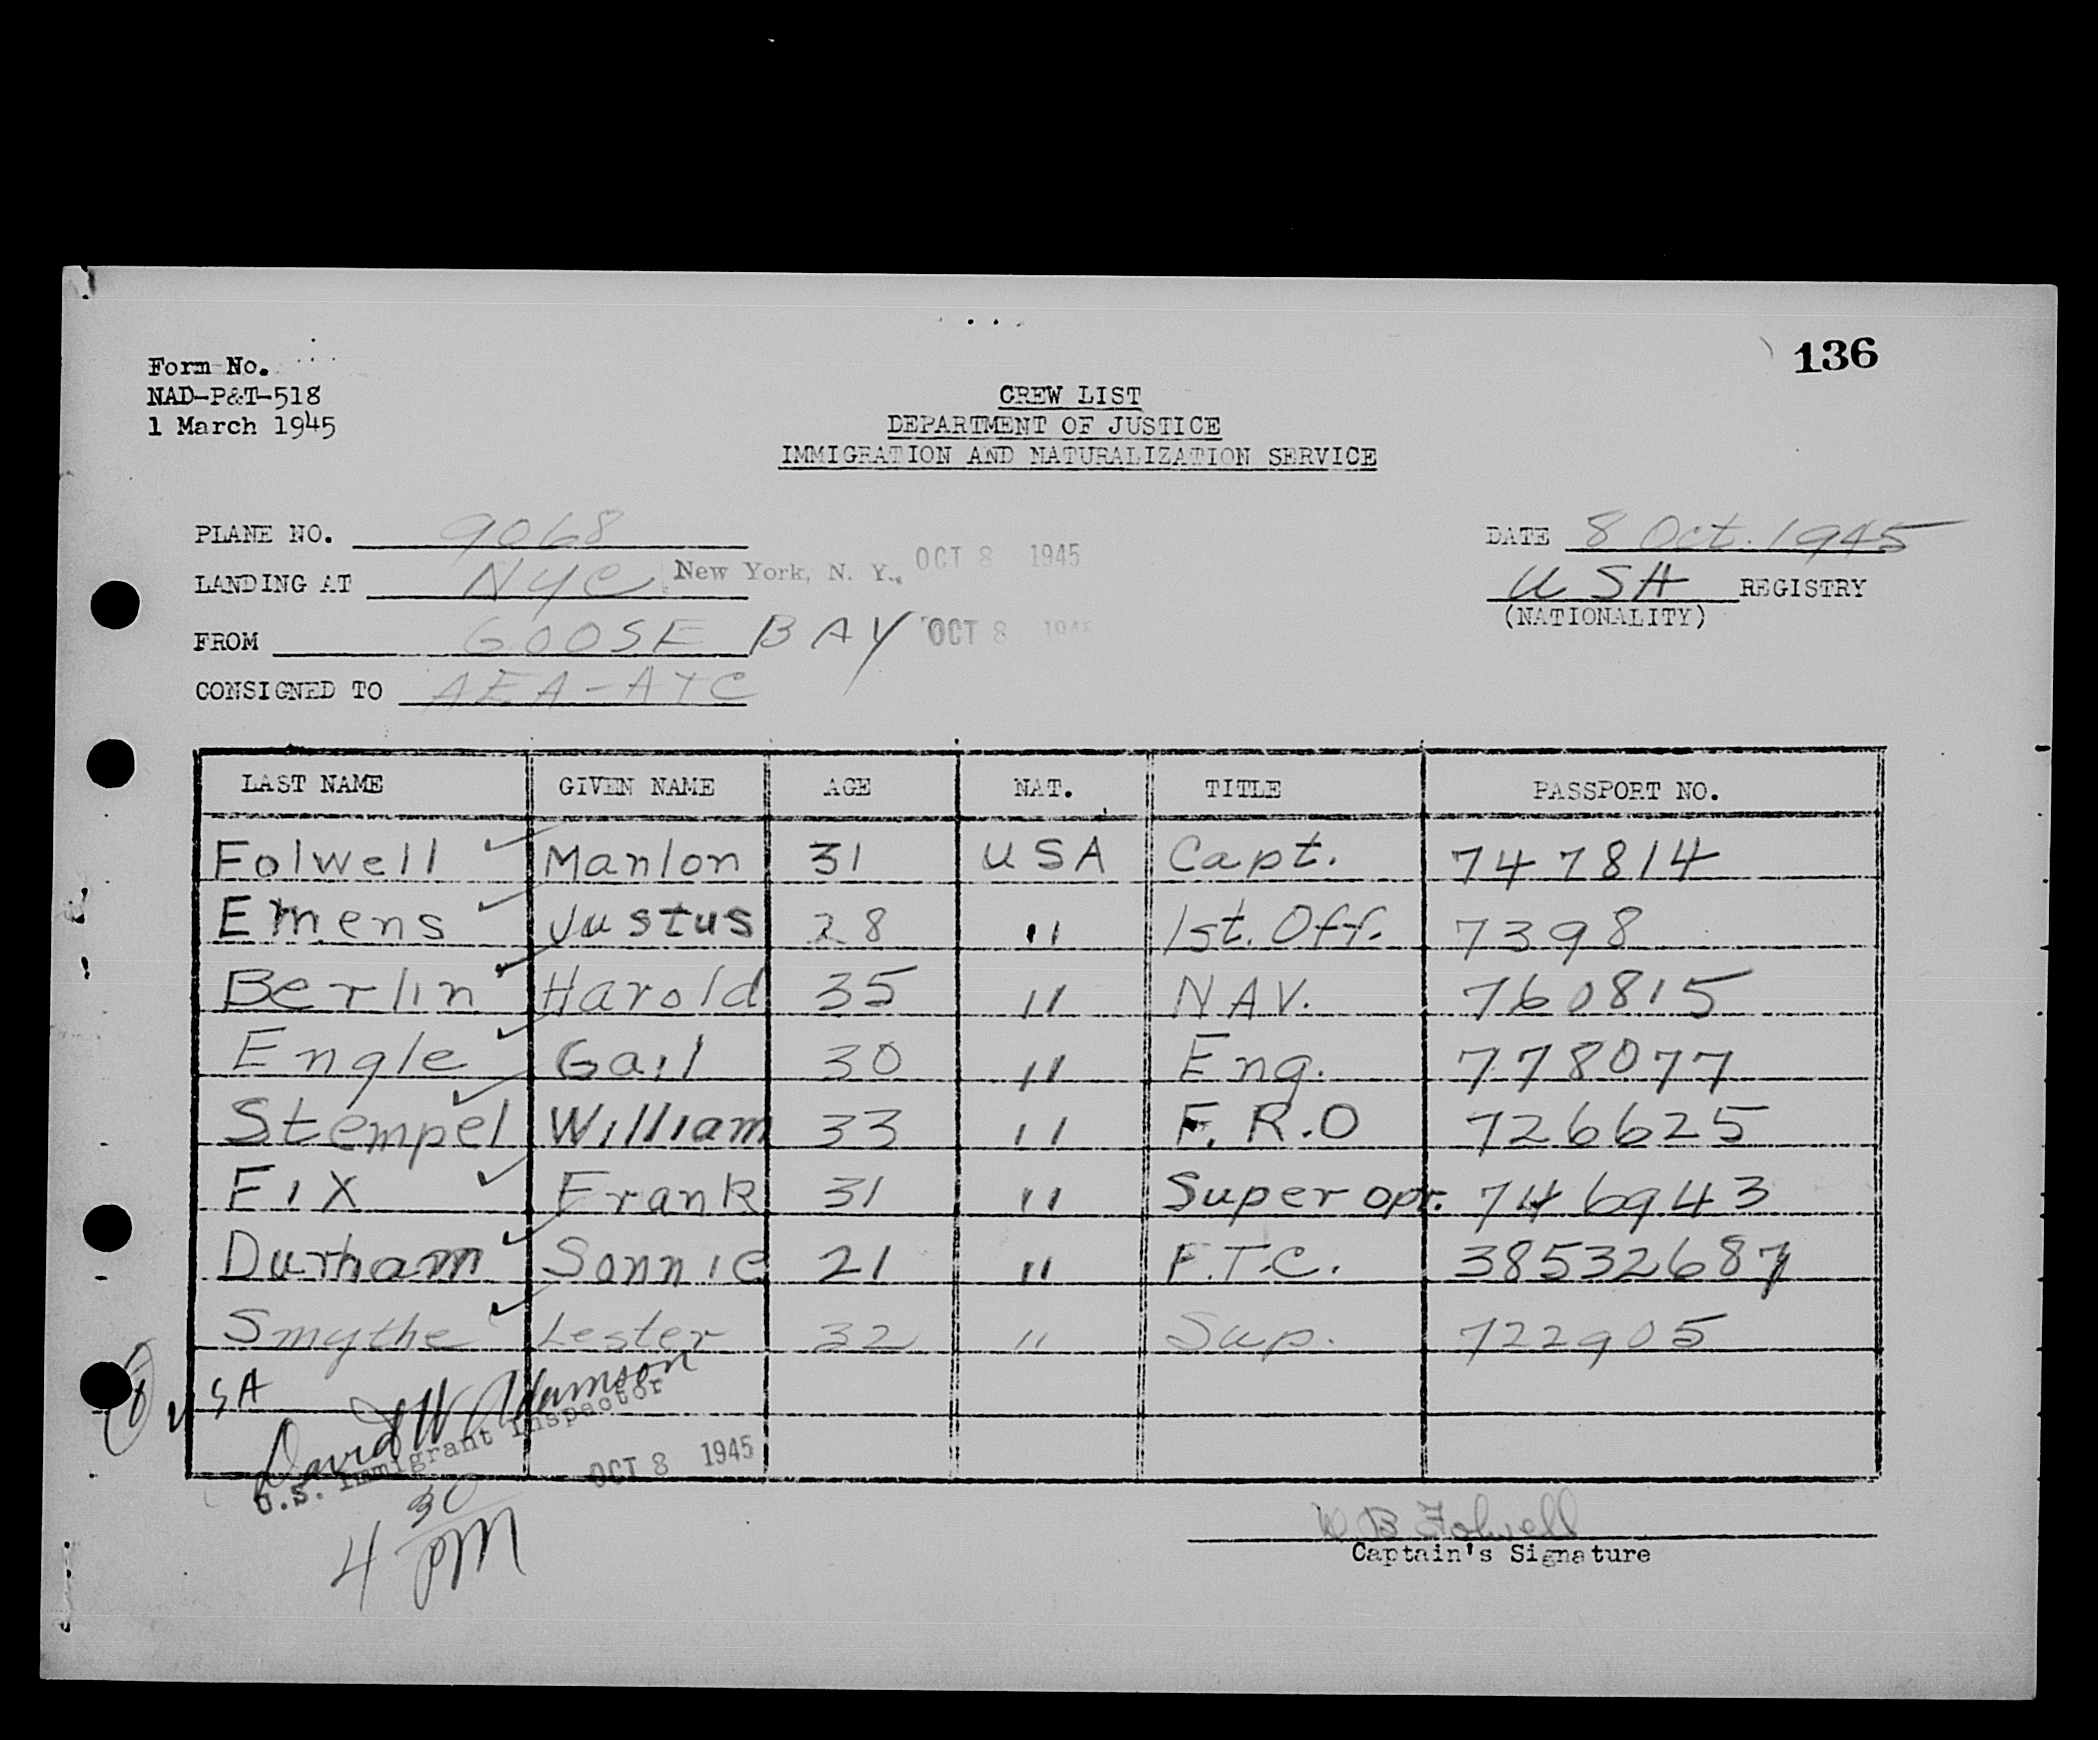 136
Form No.
NAD-P&T-518
1 March 1945
CREW LIST
DEPARTMENT OF JUSTICE
IMMIGRATION AND NATURALIZATION SERVICE
PLANE NO. 9068
DATE 8 Oct. 1945
LANDING AT NYC New York, N. Y., OCT 8 1945
USA REGISTRY
(NATIONALITY)
FROM GOOSE BAY OCT 8 1945
CONSIGNED TO AEA-ATC
LAST NAME GIVEN NAME AGE NAT. TITLE PASSPORT NO.
Folwell Manlon 31 USA Capt. 747814
Emens Justus 28 " 1st. Off. 7398
Berlin Harold 35 " NAV. 760815
Engle Gail 30 " Eng. 778077
Stempel William 33 " F.R.O 726625
Fix Frank 31 " Super opr. 746943
Durham Sonnie 21 " F.T.C. 38532687
Smythe Lester 32 " Sup. 722905
USA
David W Adamson
U.S. Immigrant Inspector
OCT 8 1945
4 30 PM
B Folwell
Captain's Signature